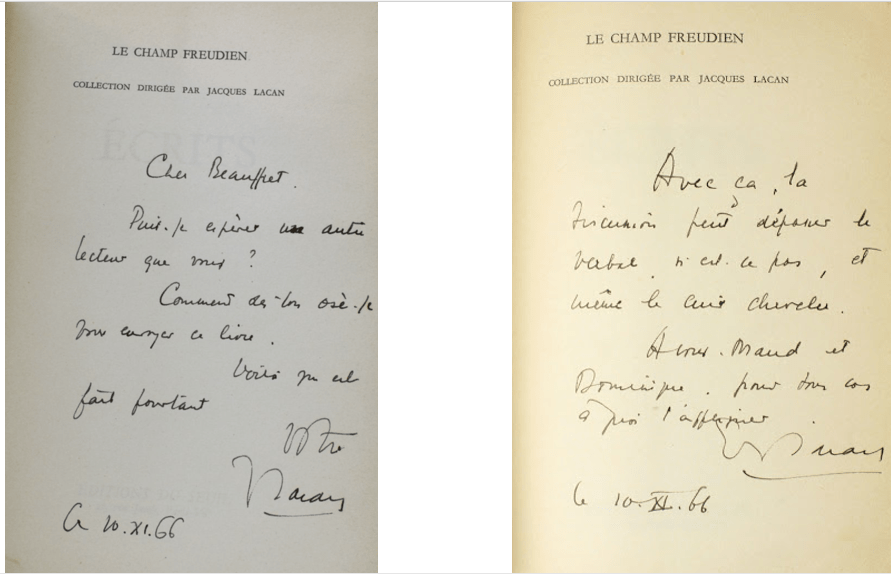 LE CHAMP FREUDIEN
COLLECTION DIRIGÉE PAR JACQUES LACAN
ÉCRITS
Cher Beaufret.
Puis-je espérer un autre
lecteur que vous ?
Comment dès lors osé-je
vous envoyer ce livre.
Voilà qui est
fait pourtant
Votre
J Lacan
Ce 10.XI.66
LE CHAMP FREUDIEN
COLLECTION DIRIGÉE PAR JACQUES LACAN
Avec ça, la
discussion peut dépasser le
verbal n'est-ce pas, et
même le cuir chevelu.
A vous. Maud et
Dominique. pour tous cas
à quoi l'appliquer.
J Lacan
Ce 10.XI.66